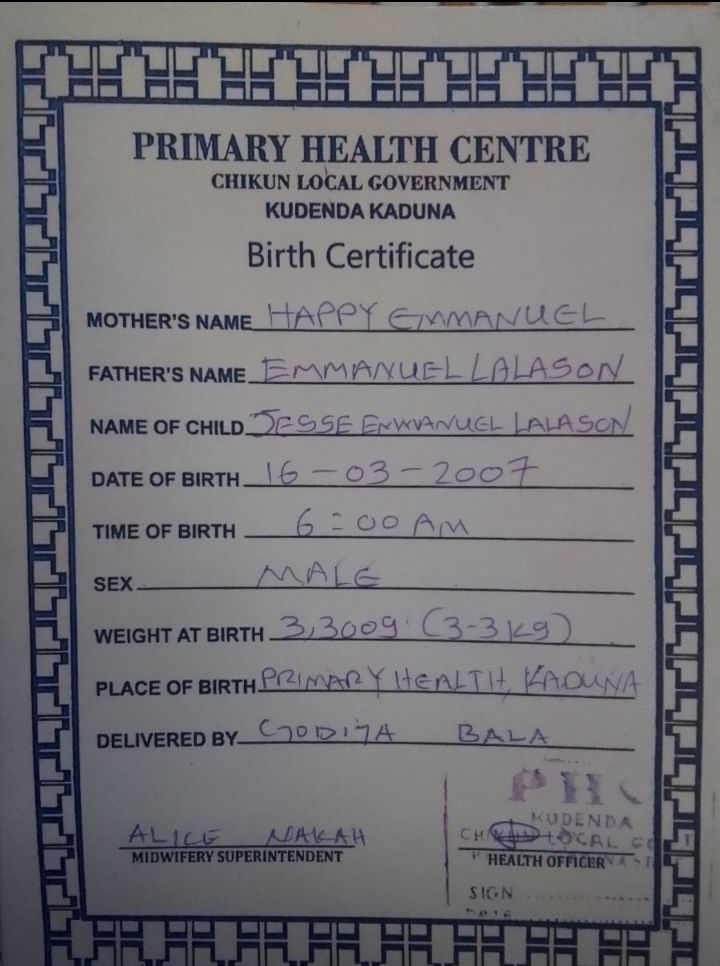 PRIMARY HEALTH CENTRE
CHIKUN LOCAL GOVERNMENT
KUDENDA KADUNA
Birth Certificate
MOTHER'S NAME HAPPY EMMANUEL
FATHER'S NAME EMMANUEL LALASON
NAME OF CHILD JESSE EMMANUEL LALASON
DATE OF BIRTH 16-03-2007
TIME OF BIRTH 6:00 AM
SEX MALE
WEIGHT AT BIRTH 3,300g (3-3kg)
PLACE OF BIRTH PRIMARY HEALTH, KADUNA
DELIVERED BY GODIYA BALA
PHC
KUDENDA
LOCAL
ALICE
MIDWIFERY SUPERINTENDENT
HEALTH OFFICER
SIGN
DATE